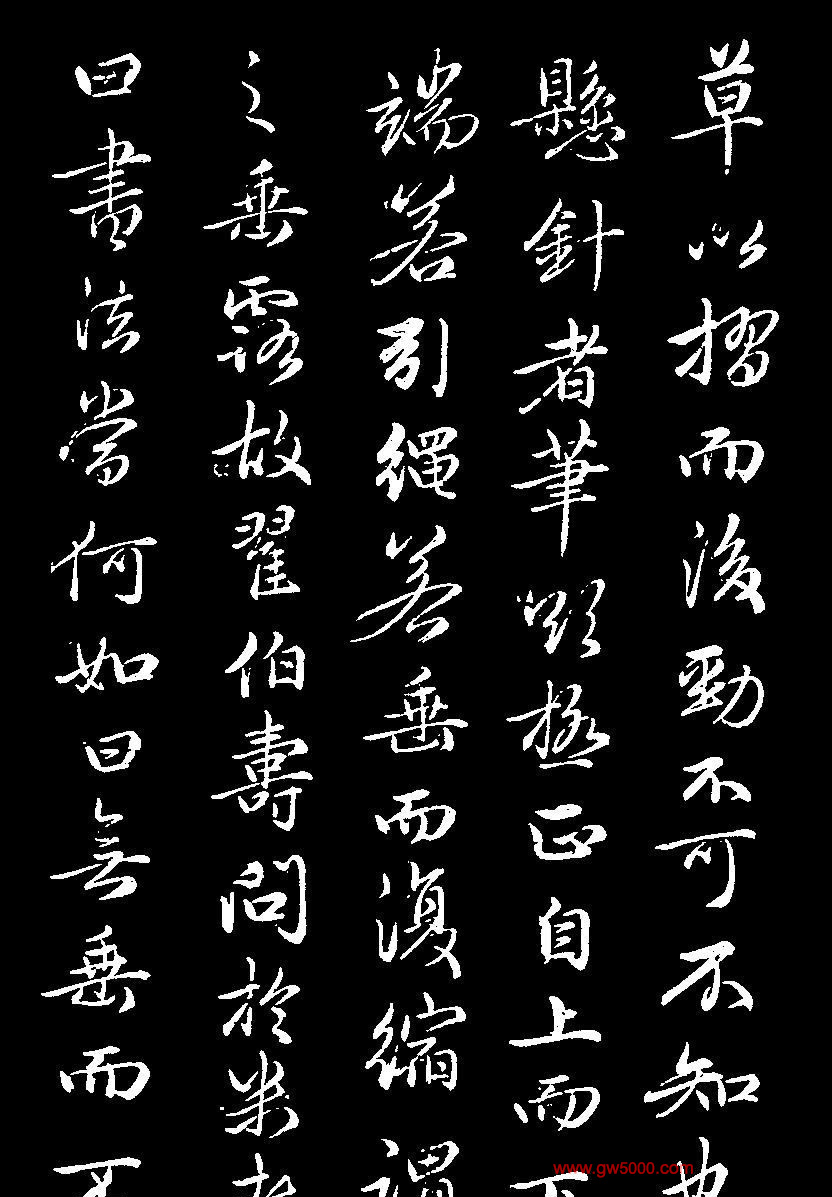 草以摺而後勁不可不知也
懸針者筆欲極正自上而下
端若引繩若垂而復縮謂
之垂露故翟伯壽問於米老
曰書法當何如曰無垂而不
www.gw5000.com